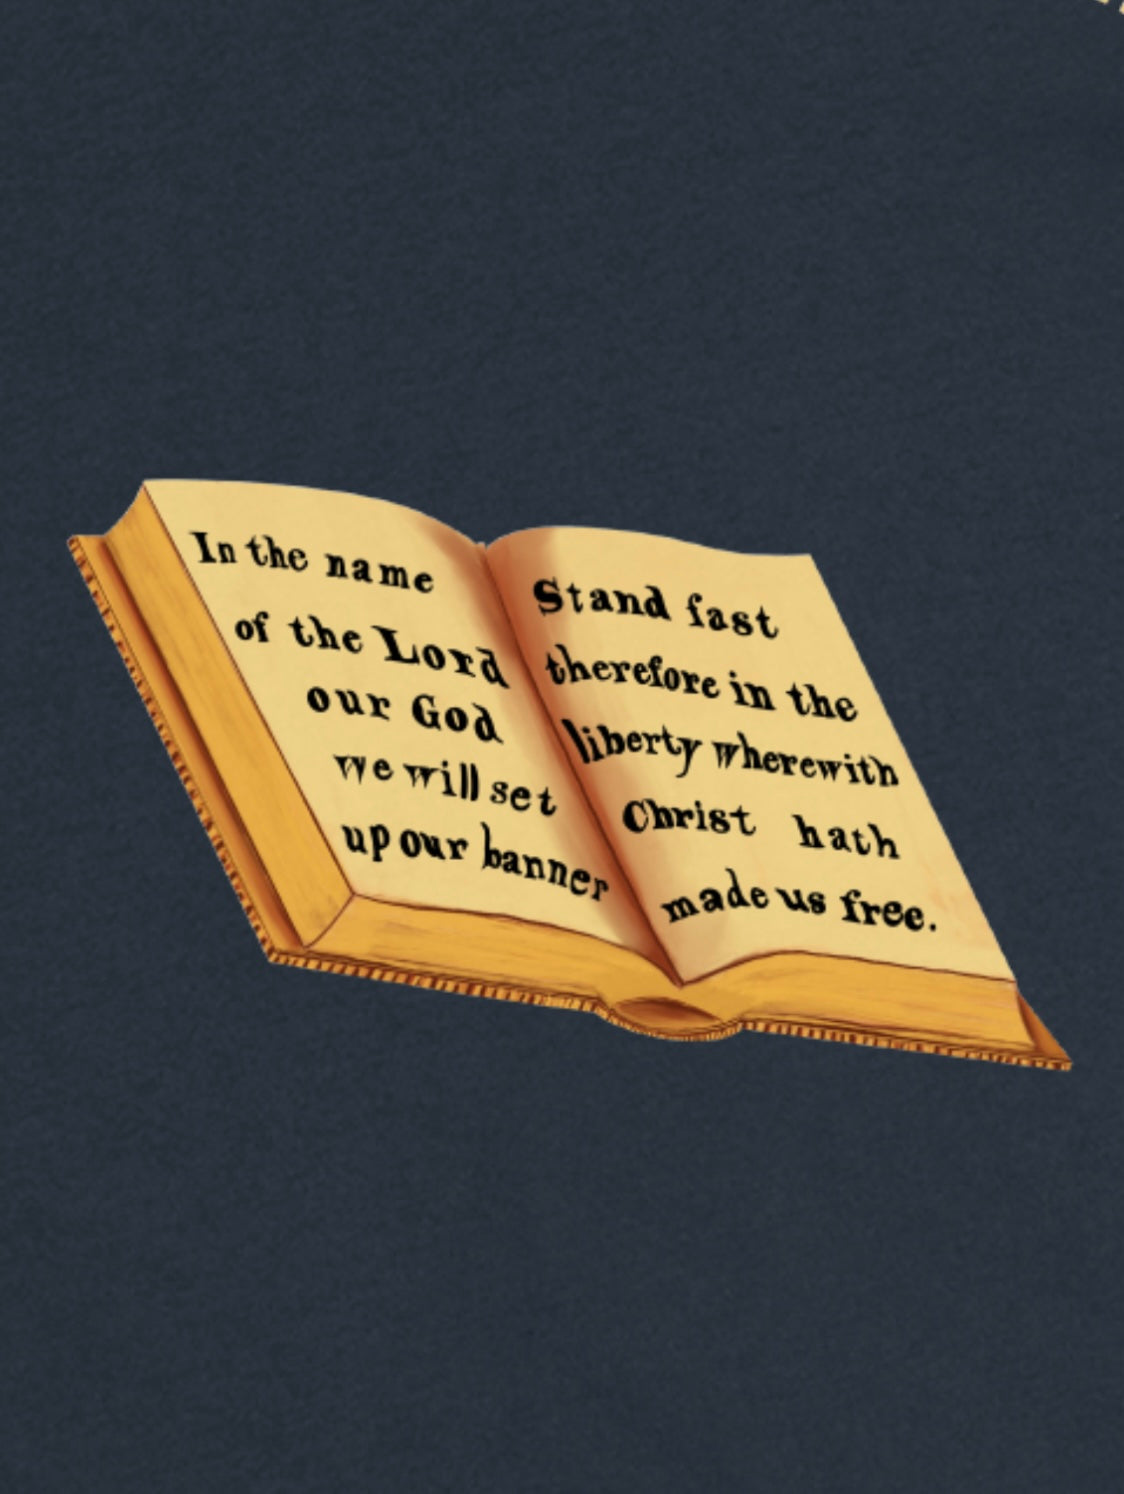 In the name
of the Lord
our God
we will set
up our banner
Stand fast
therefore in the
liberty wherewith
Christ hath
made us free.